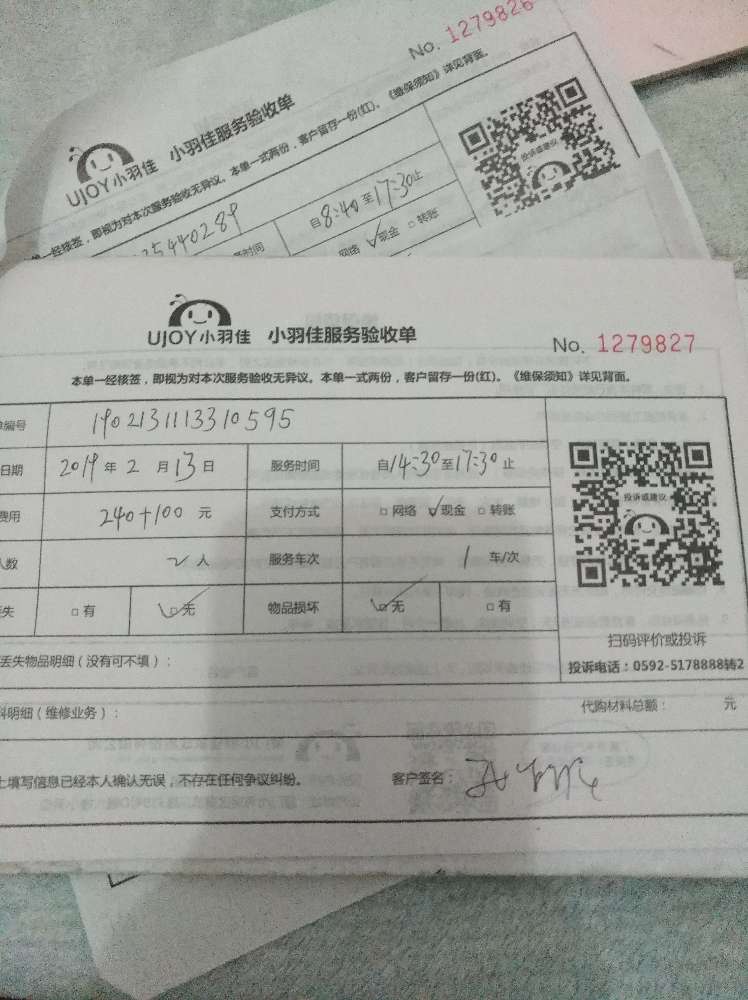 No. 1279826
UJOY小羽佳 小羽佳服务验收单
一经核签,即视为对本次服务验收无异议。本单一式两份,客户留存一份(红)。《维保须知》详见背面。
35440289
务时间 自8:40至17:30止
网络 ☑现金 □转账
投诉或建议
UJOY小羽佳 小羽佳服务验收单
No. 1279827
本单一经核签,即视为对本次服务验收无异议。本单一式两份,客户留存一份(红)。《维保须知》详见背面。
编号 1902131113310595
日期 2019年2月13日 服务时间 自14:30至17:30止
费用 240+100元 支付方式 □网络 ☑现金 □转账
投诉或建议
人数 2人 服务车次 1车/次
失 □有 ☑无 物品损坏 ☑无 □有
扫码评价或投诉
投诉电话:0592-5178888转2
丢失物品明细(没有可不填):
料明细(维修业务): 代购材料总额: 元
上填写信息已经本人确认无误,不存在任何争议纠纷。 客户签名: